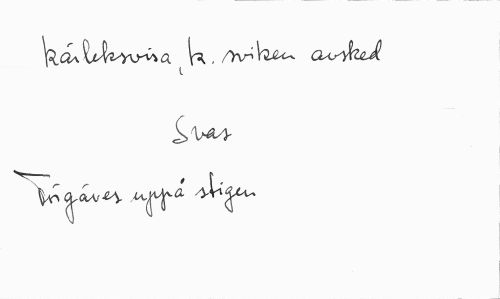 kärleksvisa, k. sviken avsked
Svar
Förgäves uppå stigen